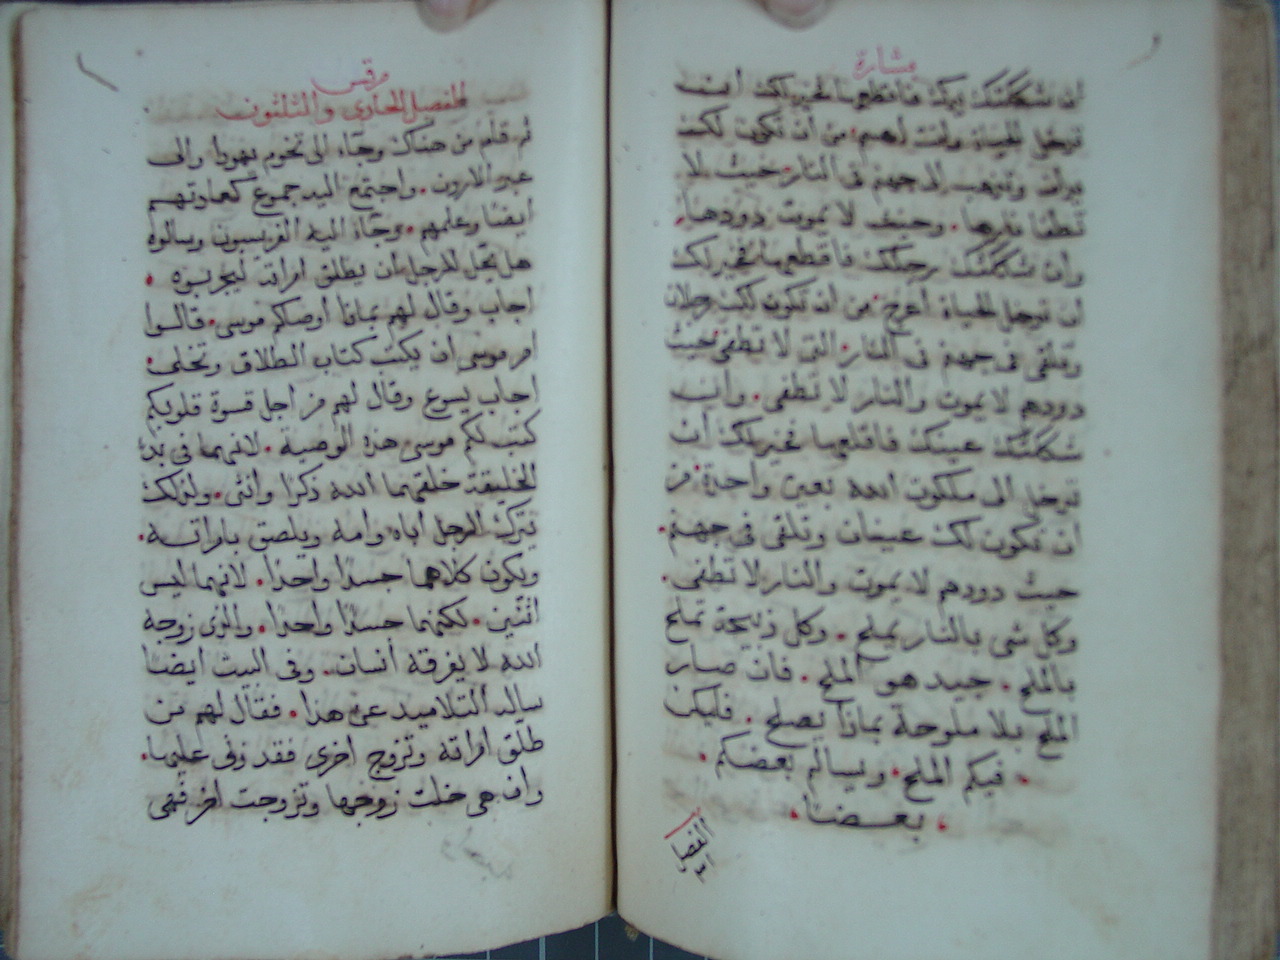 بشارة
ان شككتك يدك فاقطعها فخير لك انت
تدخل الحياة وانت اعسم من ان تكون لك
يدان وتذهب الى جهنم في النار حيث لا
تطفا نارها. وحيث لا يموت دودها.
وان شككتك رجلك فاقطعها فخير لك
ان تدخل الحياة اعرج. من ان تكون لك رجلان
وتلقى في جهنم في النار. التي لا تطفى حيث
دودهم لا يموت والنار لا تطفى. وان
شككتك عينك فاقلعها فخير لك ان
تدخل الى ملكوت الله بعين واحدة من
ان تكون لك عينان وتلقى في جهنم.
حيث دودهم لا يموت والنار لا تطفى.
وكل شي بالنار يملح. وكل ذبيحة تملح
بالملح. جيد هو الملح. فان صار
الملح بلا ملوحة بماذا يصلح. فليكن
فيكم الملح. وليسالم بعضكم.
بعضا.
مرقس
الفصل الحادي والثلثون
ثم قام من هناك وجاء الى تخوم يهودا والى
عبر الاردن. واجتمع اليه جموع كعادتهم
ايضا وعلمهم. وجاء اليه الفريسيون وسالوه
هل يحل للرجل ان يطلق امراته ليجربوه.
اجاب وقال لهم بماذا أوصاكم موسى. قالوا
امر موسى ان يكتب كتاب الطلاق وتخلى.
اجاب يسوع وقال لهم من اجل قسوة قلوبكم
كتب لكم موسى هذه الوصية. لانهما في بدء
الخليقة خلقهما الله ذكرا وانثى. ولذلك
يترك الرجل اباه وامه ويلصق بامراته.
ويكون كلاهما جسدا واحدا. لانهما ليس
اثنين. لكنهما جسدا واحدا. والذي زوجه
الله لا يفرقه أنسان. وفي البيت ايضا
ساله التلاميد عن هذا. فقال لهم من
طلق امراته وتزوج اخرى فقد زنى عليها.
وان هي خلت زوجها وتزوجت اخر فهي